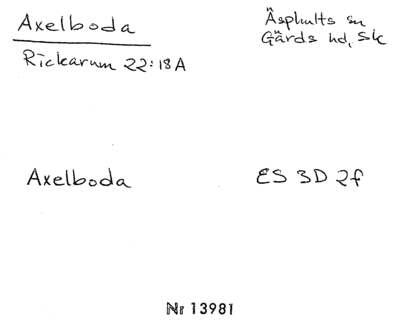 Axelboda
Rickarum 22:18A
Äsphults sn
Gärds hd, Sk
Axelboda
ES 3D 2f
Nr 13981